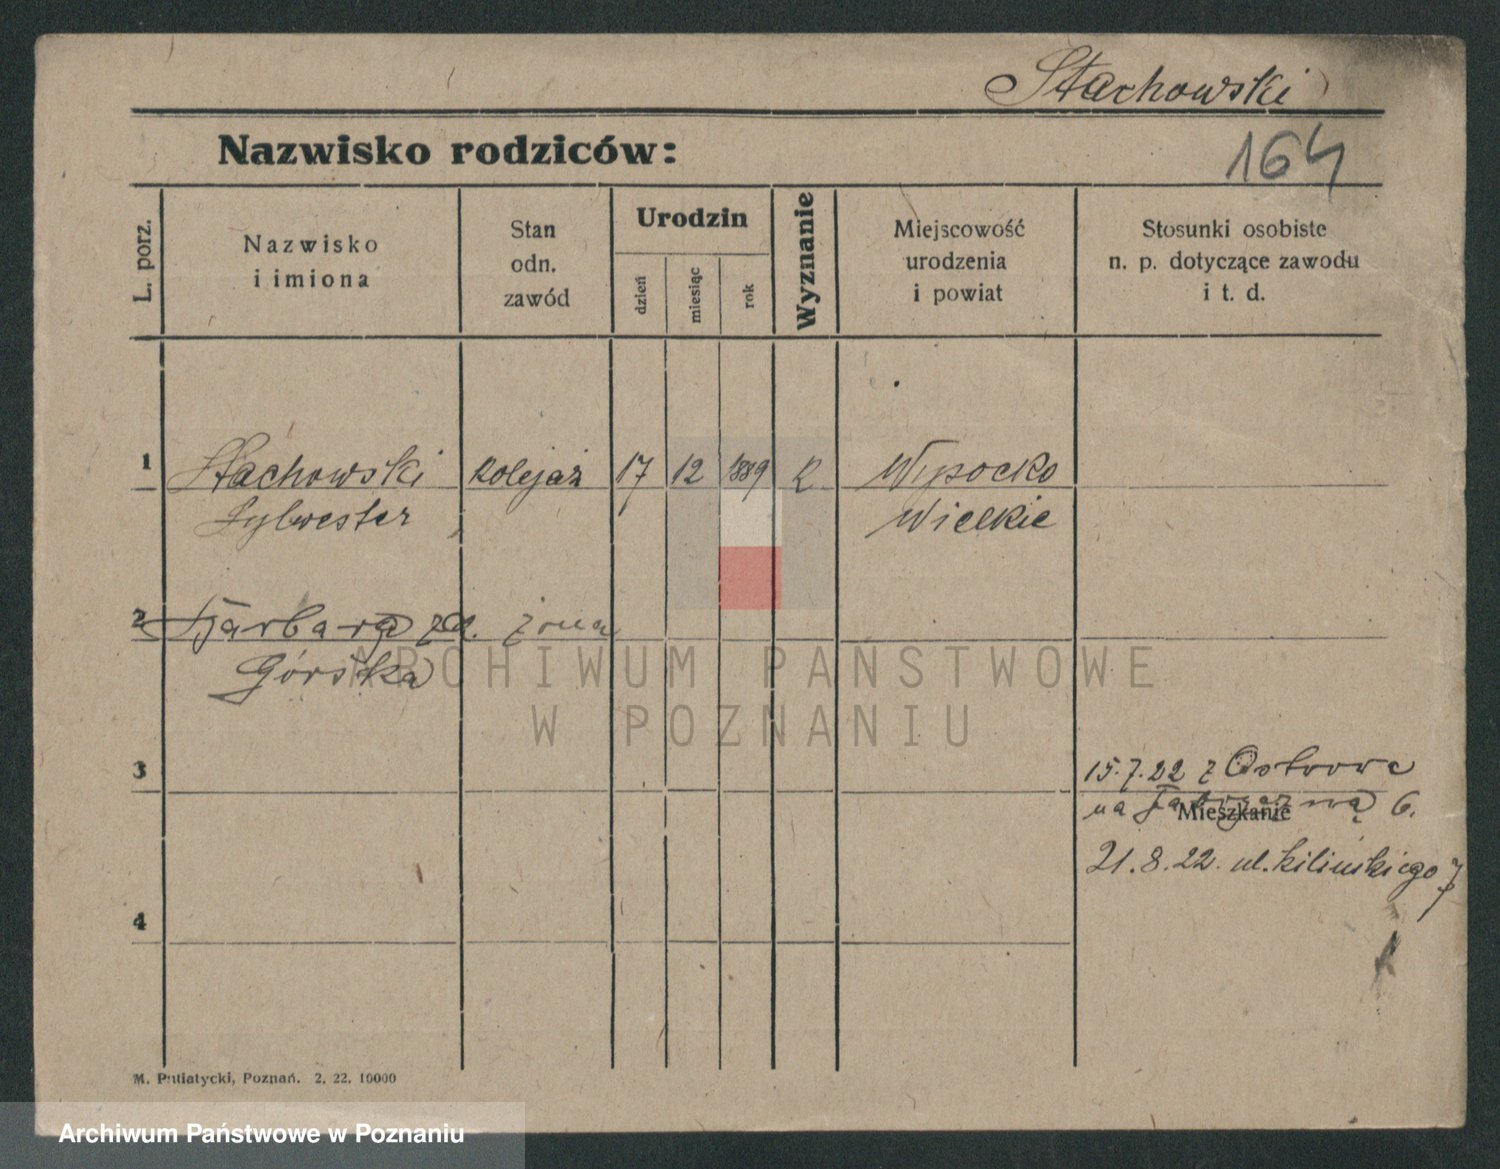 Stachowski
Nazwisko rodziców:
164
L. porz.
Nazwisko
i imiona
Stan
odn.
zawód
Urodzin
dzień
miesiąc
rok
Wyznanie
Miejscowość
urodzenia
i powiat
Stosunki osobiste
n. p. dotyczące zawodu
i t. d.
1 Stachowski kolejaż 17 12 1889 k Wysocko
Sylwester Wielkie
2 Barbara zd. żona
Górska
ARCHIWUM PAŃSTWOWE
W POZNANIU
3
15.7.22 z Ostrowa
na 6.
Mieszkanie
21.8.22. ul. Kilińskiego 7
4
M. Putiatycki, Poznań. 2. 22. 10000
Archiwum Państwowe w Poznaniu